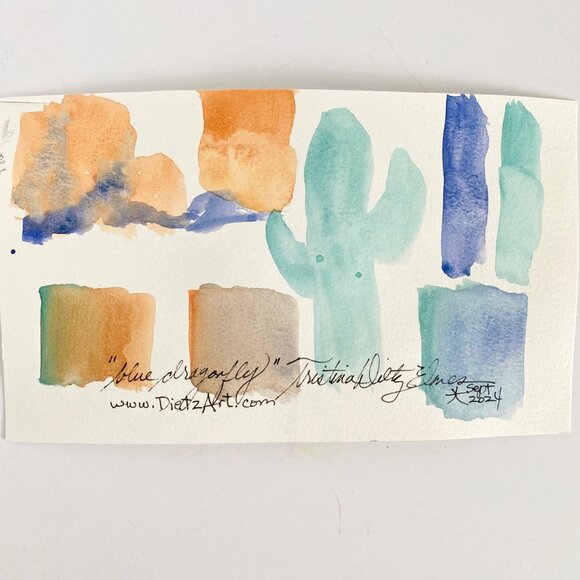 "blue dragonfly" Tristina Dietz Elmes
www.DietzArt.com
Sept
2024